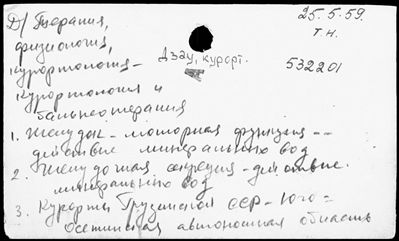 Д/ Терапия,
25.5.59.
физиология,
т.н.
курортология –
Дзау, курорт.
532201
курортология и
бальнеотерапия
1. Желудок - моторная функция --
действие минеральных вод
2. Желудочная секреция - действие.
минеральных вод
3. Курорты Грузинской ССР - Юго =
Осетинская автономная область